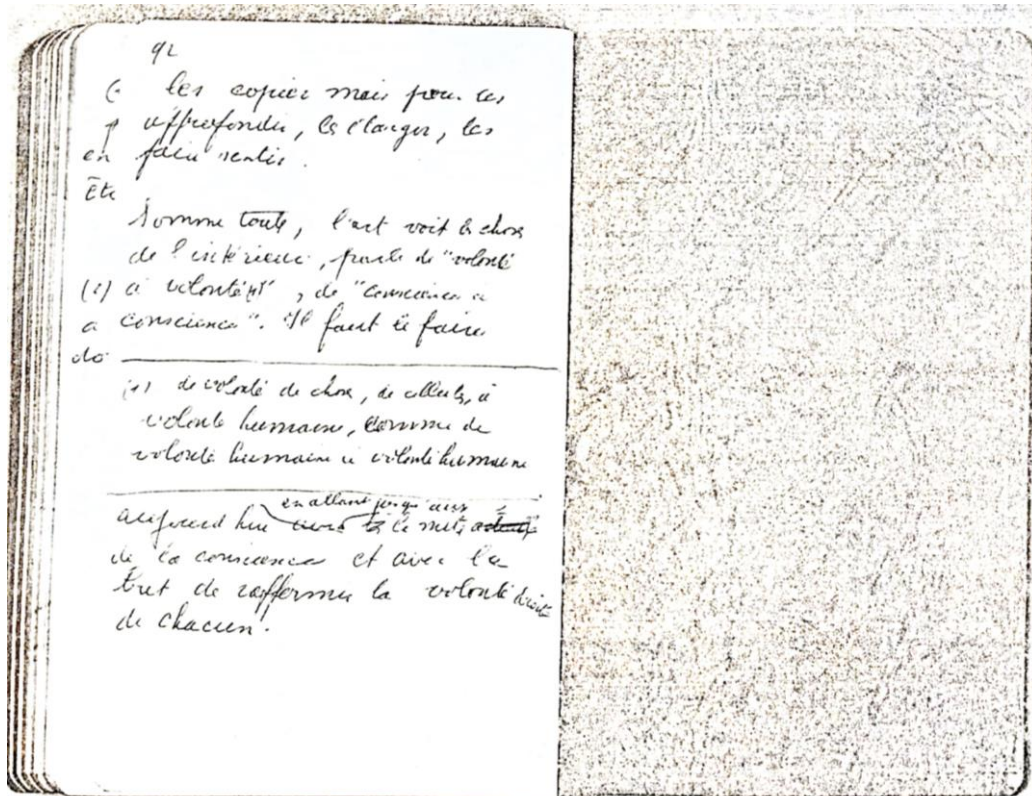 92
les copier mais pour les
approfondir, les élargir, les
faire sentir.
Somme toute, l'art voit la chose
de l'intérieur, parle de "volonté
à volonté(1)", de "conscience à
conscience". Il faut le faire
(1) de volonté de chose, de cellule, à
volonté humaine, comme de
volonté humaine à volonté humaine
en allant jusqu'aux
aujourd'hui
de la conscience et avec le
but de raffermir la volonté droite
de chacun.
en
Ête
(1)
a
do